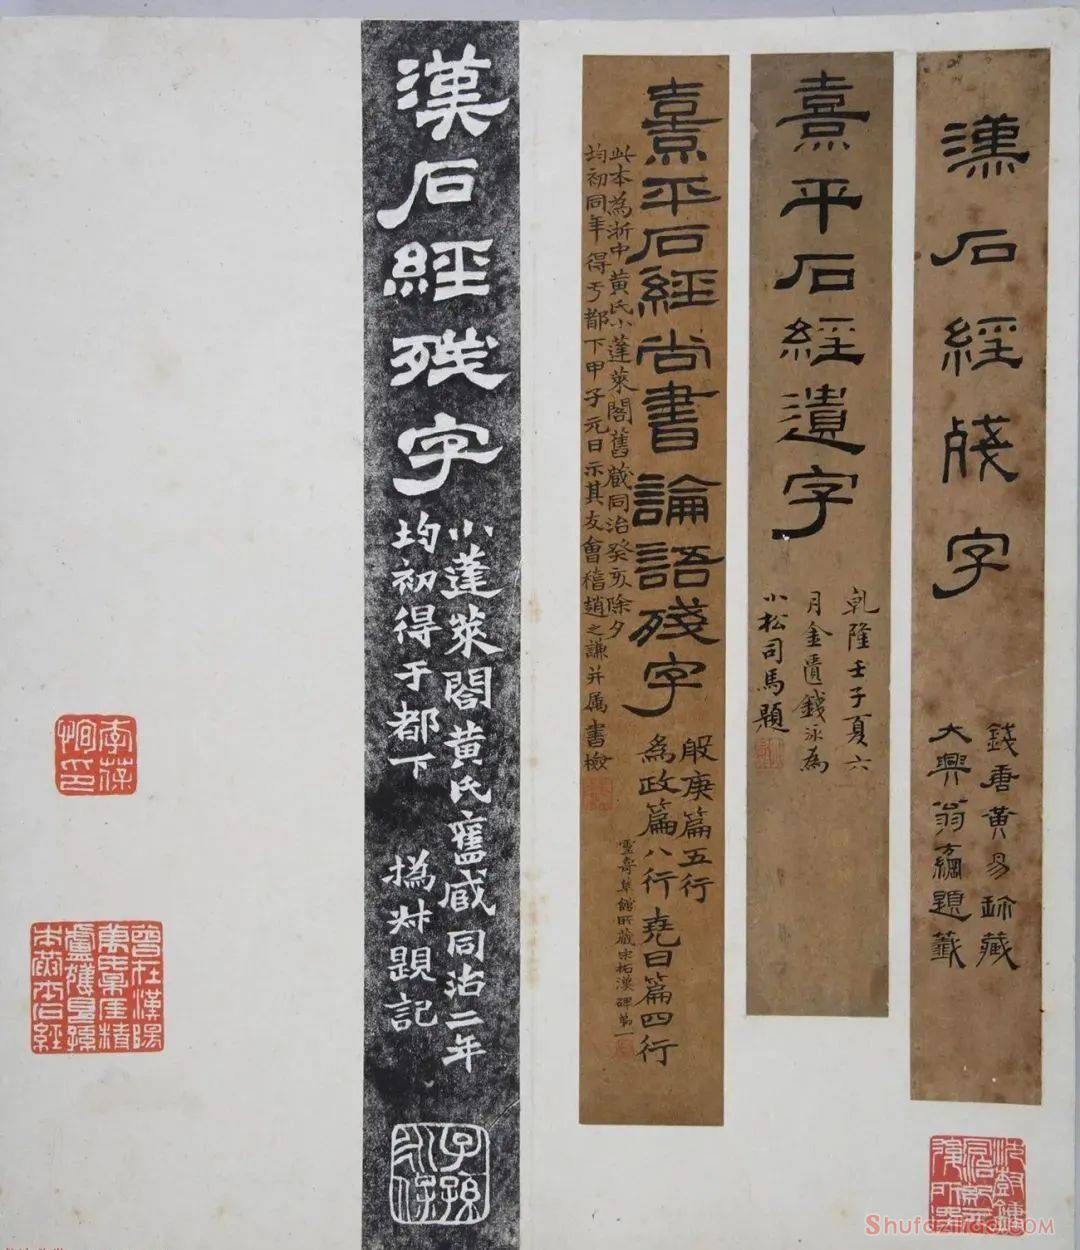 漢石經殘字
錢唐黃易珎藏
大興翁方綱題籤
熹平石經遺字
乾隆壬子夏六
月金匱錢泳為
小松司馬題
熹平石經尚書論語殘字
般庚篇五行
為政篇八行堯曰篇四行
此本為浙中黃氏小蓬萊閣舊藏同治癸亥除夕
均初同年得于都下甲子元日示其友會稽趙之謙并屬書檢
靈壽草館所藏宋拓漢碑第一
漢石經殘字
小蓬萊閣黃氏舊藏同治二年
均初得于都下
撝叔題記
子孫
永保
Shufazidao.com